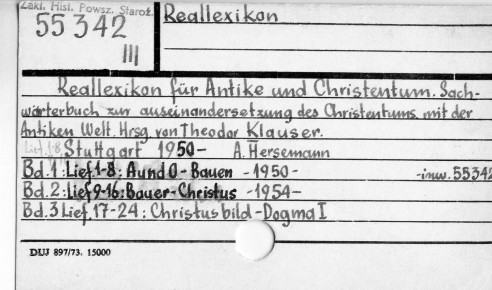 Zakł. Hist. Powsz. Staroż.
55342
III
Reallexikon
Reallexikon für Antike und Christentum. Sach-
wörterbuch zur auseinandersetzung des Christentums mit der
Antiken Welt. Hrsg. von Theodor Klauser.
Stuttgart 1950- A. Hersemann
Bd. 1: Lief. 1-8: A und O - Bauen -1950- -inw. 55342
Bd. 2: Lief. 9-16: Bauer-Christus -1954-
Bd. 3 Lief. 17-24: Christusbild-Dogma I
DUJ 897/73. 15000